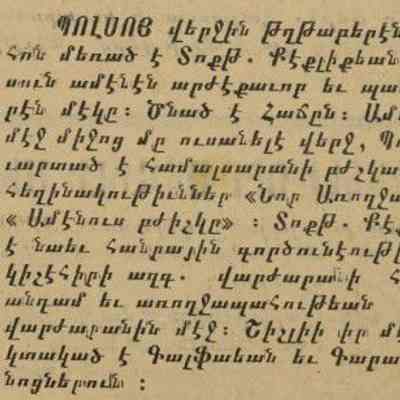 ՊՈԼՍՈՅ վերջին թղթաբերէն
Հոն մեռած է Տոքթ. Քէքլիքեան
սուն ամէնէն արժէքաւոր եւ պա
րէն մէկը։ Ծնած է Հաճըն։ Ամ
մէջ միջոց մը ուսանելէ վերջ, Պո
ւարտած է Համալսարանի բժշկա
Հեղինակութիւններ «Նոր Առողջա
« Ամէնուս բժիշկը» ։ Տոքթ. Քէ
է նաեւ Հանրային գործունէութի
կիչէհիրի ազգ. վարժարանի Հ
անդամ եւ առողջապահութեան
վարժարանին մէջ։ Շիշլիի իր մ
կտակած է Գալֆաեան եւ Գարա
նոցներուն ։